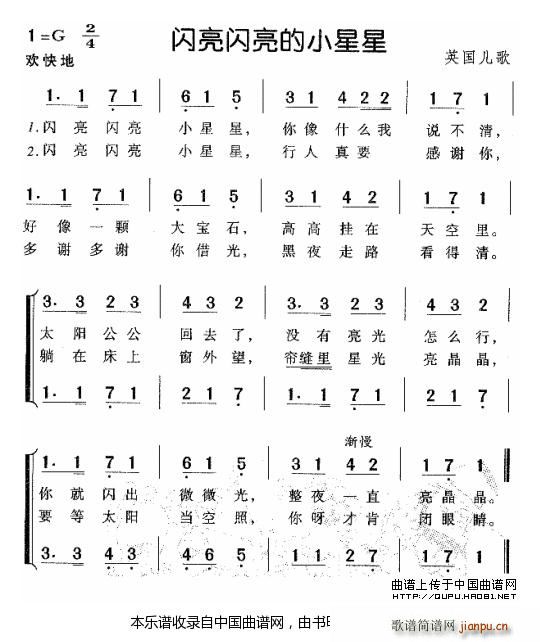 1=G 2/4 闪亮闪亮的小星星
欢快地 英国儿歌
1. 1 7 1 | 6 1 5 | 3 1 4 2 2 | 1 7 1 |
1.闪 亮 闪 亮 小 星 星, 你 像 什 么 我 说 不 清,
2.闪 亮 闪 亮 小 星 星, 行 人 真 要 感 谢 你,
1. 1 7 1 | 6 1 5 | 3 1 4 2 | 1 7 1 |
好 像 一 颗 大 宝 石, 高 高 挂 在 天 空 里。
多 谢 多 谢 你 借 光, 黑 夜 走 路 看 得 清。
3. 3 2 3 | 4 3 2 | 3. 3 2 3 | 4 3 2 |
太 阳 公 公 回 去 了, 没 有 亮 光 怎 么 行,
躺 在 床 上 窗 外 望, 帘缝里 星 光 亮 晶 晶,
1. 1 7 1 | 2 1 7 | 1. 1 7 1 | 2 1 7 |
渐慢
1. 1 7 1 | 6 1 5 | 3 1 4 2 | 1 7 1 ‖
你 就 闪 出 微 微 光, 整 夜 一 直 亮 晶 晶。
要 等 太 阳 当 空 照, 你 呀 才 肯 闭 眼 睛。
3. 3 4 3 | 4 6 5 | 5 5 6 4 | 3 4 3 ‖
曲谱上传于中国曲谱网
本乐谱收录自中国曲谱网，由书
歌谱简谱网
jianpu.cn